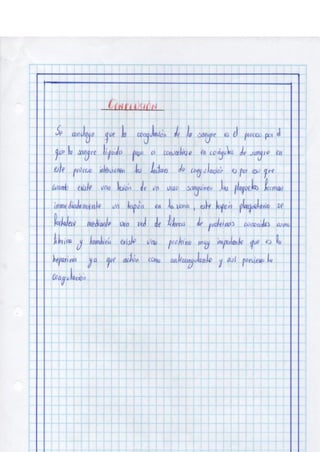 CONCLUSIÓN
Se concluye que la coagulación de la sangre es el proceso por el
que la sangre líquida pasa a convertirse en coágulos de sangre en
este proceso intervienen los factores de coagulación es por eso que
cuando existe una lesión de un vaso sanguíneo las plaquetas forman
inmediatamente un tapón en la zona, este tapón plaquetario se
fortalece mediante una red de fibras de proteínas conocidas como
fibrina y también existe una proteína muy importante que es la
heparina ya que actúa como anticoagulante y así previene la
coagulación.